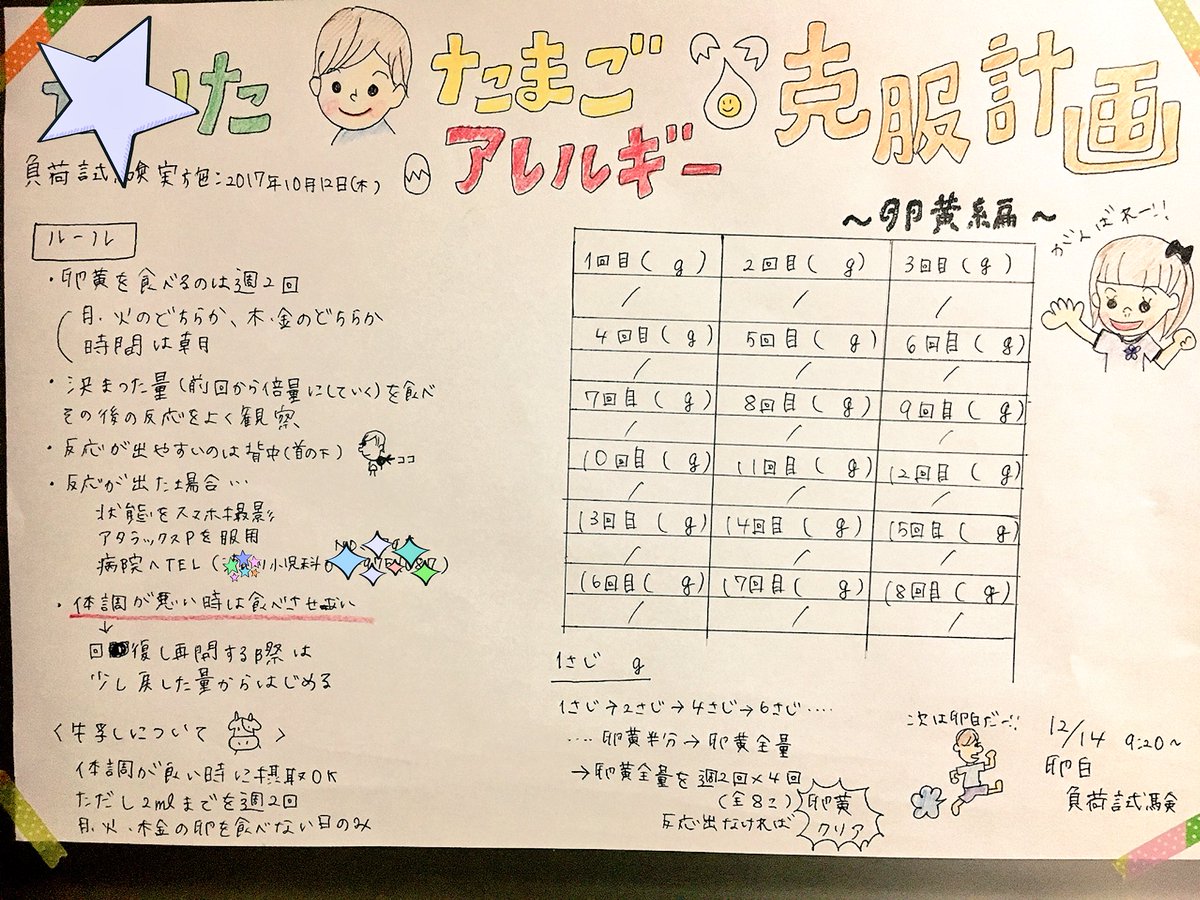 けた たまご 克服計画
アレルギー
負荷試験実施:2017年10月12日(木)
〜卵黄編〜
がんばれー!!
ルール
・卵黄を食べるのは週2回
月・火のどちらか、木・金のどちらか
時間は朝
・決まった量(前回から倍量にしていく)を食べ
その後の反応をよく観察
・反応が出やすいのは背中(首の下)
ココ
・反応が出た場合…
状態をスマホ撮影
アタラックスPを服用
病院へTEL( 小児科 )
・体調が悪い時は食べさせない
↓
回復し再開する際は
少し戻した量からはじめる
〈牛乳について〉
体調が良い時に摂取OK
ただし2mlまでを週2回
月、火、木金の卵を食べない日のみ
1回目( g) 2回目( g) 3回目( g)
/ / /
4回目( g) 5回目( g) 6回目( g)
/ / /
7回目( g) 8回目( g) 9回目( g)
/ / /
10回目( g) 11回目( g) 12回目( g)
/ / /
13回目( g) 14回目( g) 15回目( g)
/ / /
16回目( g) 17回目( g) 18回目( g)
/ / /
1さじ g
1さじ→2さじ→4さじ→6さじ‥‥
‥‥卵黄半分→卵黄全量
→卵黄全量を週2回×4回
(全8コ)
反応出なければ
卵黄
クリア
次は卵白だー!!
12/14 9:20〜
卵白
負荷試験